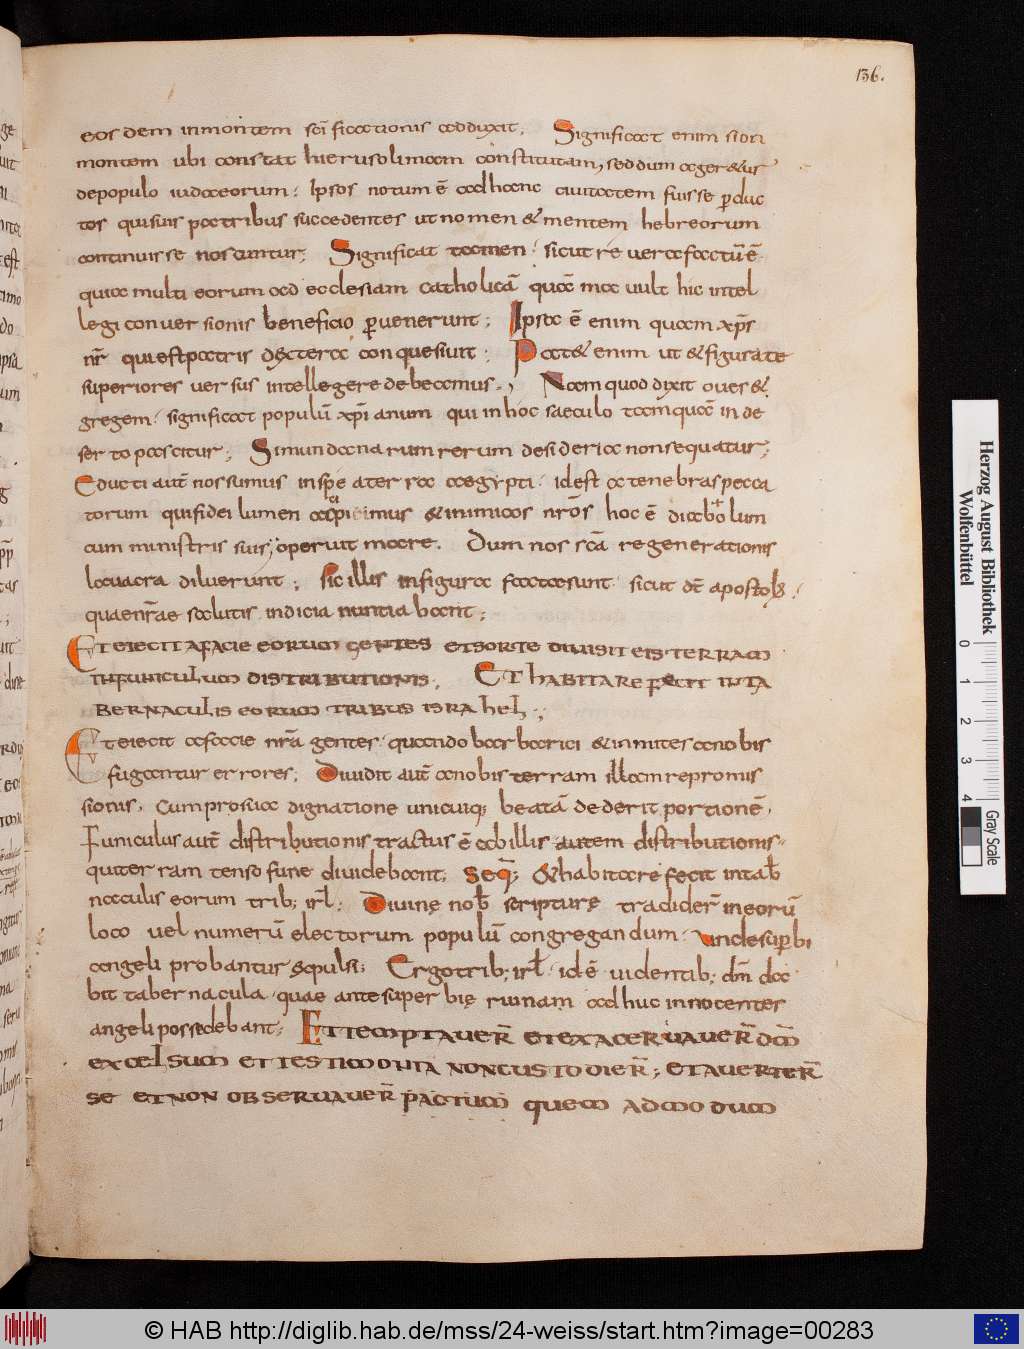 136.
eos dem inmontem sc̄i ficationis adduxit; Significat enim sion
montem ubi constat hierusolimam constitutam, sed dum ageret&ur
depopulo iudaeorum: Ipsos notum ē adhanc ciuitatem fuisse ꝑduc
tos quisuis patribus succedentes utnomen & mentem hebreorum
continuisse noscuntur; Significat tamen: sicut re uera factū ē
quia multi eorum ad ecclesiam catholicā quā ma uult hic intel
legi conuersionis beneficio ꝑuenerunt; Ipsa ē enim quam xp̄s
nr̄ qui est patris dextera conquesiuit: Pat& enim ut & figurate
superiores uersus intellegere debeamus; Nam quod dixit oues &
gregem: significat populū xp̄i anum qui in hoc saeculo tamquā in de
serto pascitur; Si mundana rum rerum desideria nonsequatur;
Educti aut̄ nos sumus inspe aterra aegypti: id est a tenebras pecca
torum quifidei lumen accipimus & inimicos nr̄os hoc ē diabolum
cum ministris suis, operuit mare. Dum nos sc̄a regenerationis
lauacra diluerunt; Sic illis infigura facta sunt sicut dt̄ apostol;
quaenr̄ae salutis indicia nuntiabant;
Et eiecit afacie eorum gentes et sorte diuisit eis terram
infuniculum distributionis; Et habitare fecit inta
bernaculis eorum tribus israhel;
Et eiecit afacie nr̄a gentes: quando barbarici & inmites anobis
fugantur errores; Diuidit aut̄ anobis terram illam repromis
sionis, Cum prosua dignatione unicuiq; beatā dederit portionē,
Funiculus aut̄ distributionis tractus ē abillis autem distributionis
quiterram tenso fune diuidebant; Seq̄; &habitare fecit intab̄
nacculis eorum trib; irl̄; Diuine nob̄ scripturę tradider̄ ineorū
loco uel numerū electorum populū congregandum: unde suꝑbi
angeli probantur ęcpulsi; Ergo trib; irl̄ id ē uidentib; dn̄m da
bit tabernacula quae ante superbię ruinam adhuc innocenter
angeli possedebant; Et temptauer̄ et exaceruauer̄ dm̄
excelsum et testimonia non custodier̄; et auerter̄
se et non obseruauer̄ pactum quem admodum
Herzog August Bibliothek
Wolfenbüttel
0 1 2 3 4
Gray Scale
© HAB http://diglib.hab.de/mss/24-weiss/start.htm?image=00283